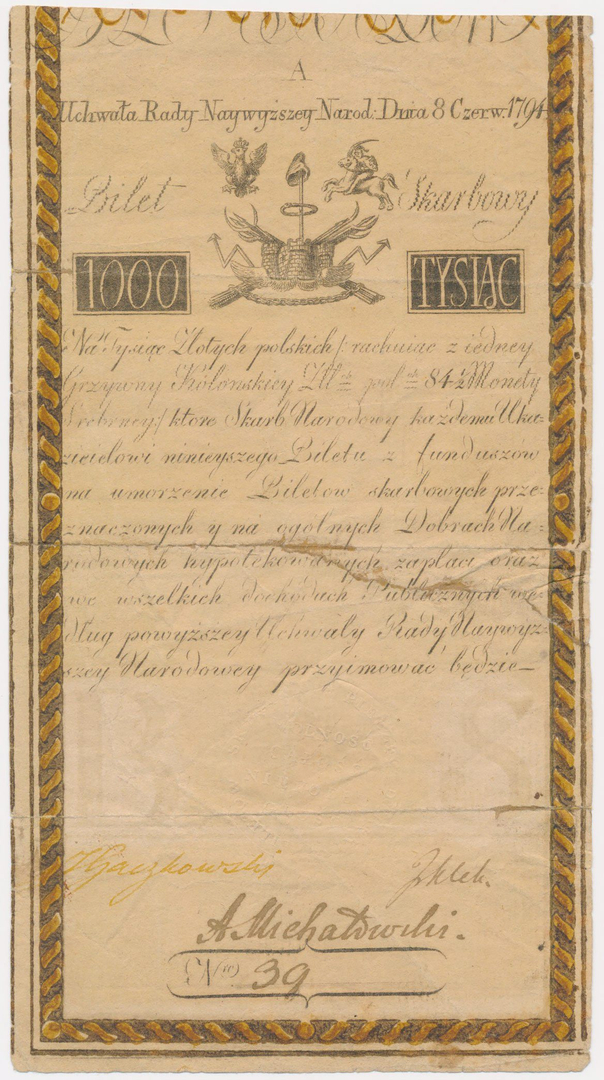 A
Uchwała Rady Naywyższey Narod: Dnia 8 Czerw. 1794
Bilet Skarbowy
1000 TYSIĄC
Na Tysiąc Złotych polskich /: rachuiąc z iedney
Grzywny Kolonskiey Zł. pol. 84½ Monety
Srebrney :/ ktore Skarb Narodowy każdemu Uka-
zicielowi ninieyszego Biletu z funduszów
na umorzenie Biletow skarbowych prze-
znaczonych y na ogolnych Dobrach Na-
rodowych hypotekowanych zapłaci oraz
we wszelkich dochodach Publicznych we-
dług powyższey Uchwały Rady Naywyż-
szey Narodowey przyimować będzie
A Michałowski.
N 39